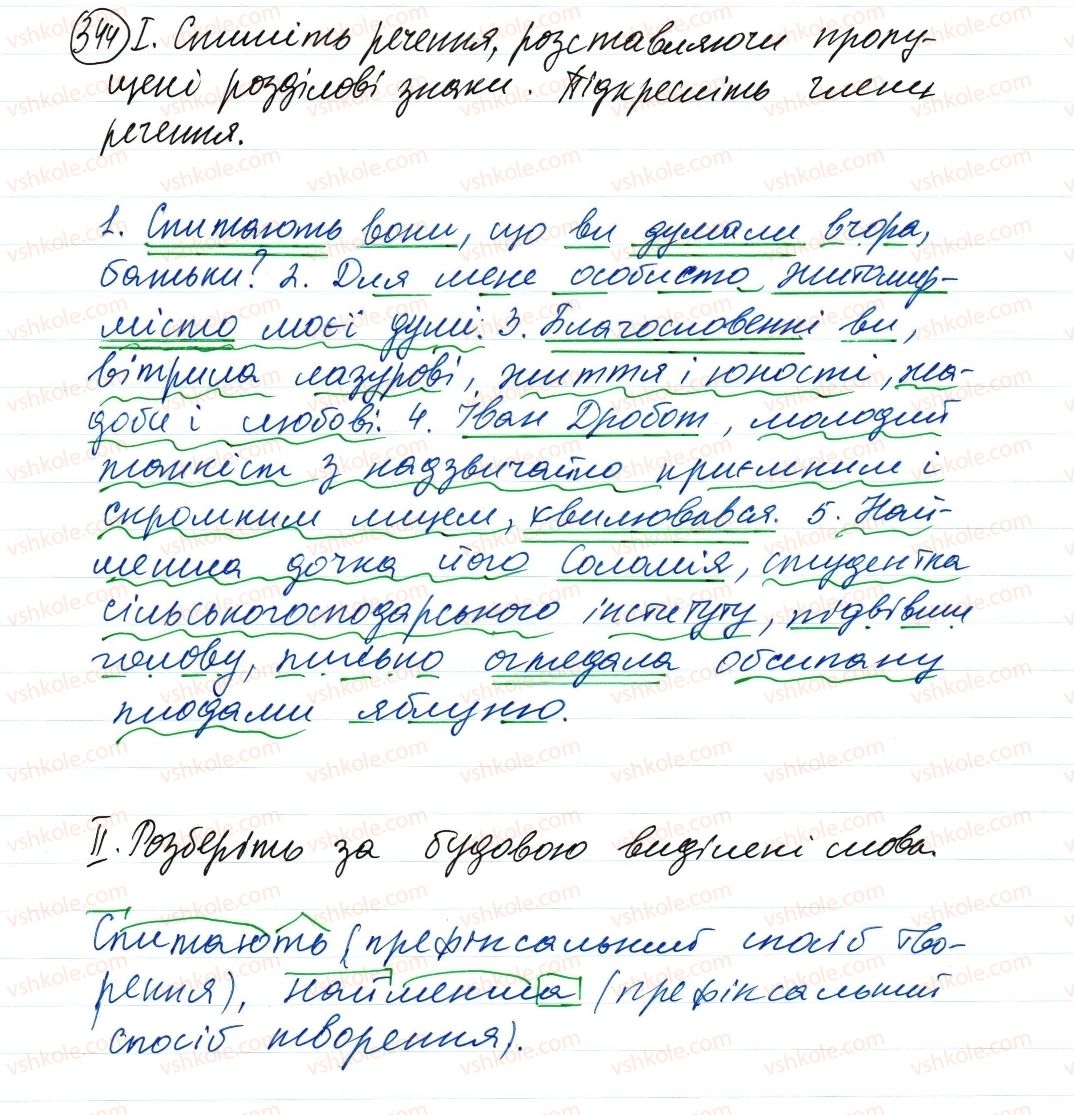 344 I. Спишіть речення, розставляючи пропу-
щені розділові знаки. Підкресліть члени
речення.
1. Спитають вони, що ви думали вчора,
батьки? 2. Для мене особисто Житомир-
місто моєї думі. 3. Благословенні ви,
вітрила лазурові, життя і юності, жа-
доби і любові. 4. Іван Дробот, молодий
танкіст з надзвичайно приємним і
скромним лицем, хвилювався. 5. Най-
менша дочка його Соломія, студентка
сільськогосподарського інституту, підвівши
голову, пильно оглядала обсипану
плодами яблуню.
II. Розберіть за будовою виділені слова.
Спитають (префіксальний спосіб тво-
рення), найменша (префіксальний
спосіб творення).